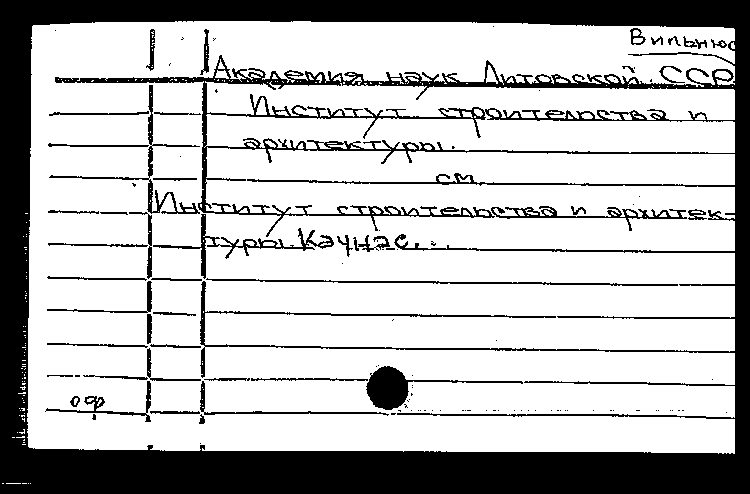 Вильнюс
Академия наук Литовской ССР
Институт строительства и
архитектуры.
см.
Институт строительства и архитек-
туры. Каунас...
оф